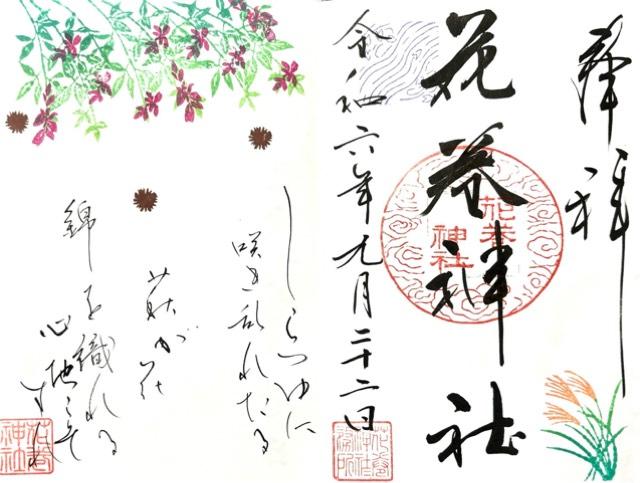 奉拝
花巻神社
花巻
神社
令和六年九月二十二日
しらつゆに
咲き乱れたる
萩が花
錦を織れる
心地こそ
すれ
花巻
神社